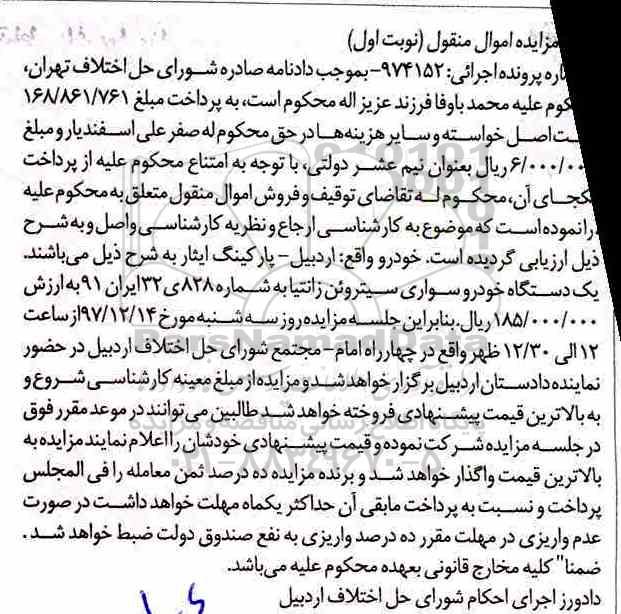 مزایده اموال منقول (نوبت اول)
پرونده اجرائی: ۹۷۴۱۵۲- بموجب دادنامه صادره شورای حل اختلاف تهران،
علیه محمد باوفا فرزند عزیز اله محکوم است، به پرداخت مبلغ ۱۶۸/۸۶۱/۷۶۱
اصل خواسته و سایر هزینه‌ها در حق محکوم له صفر علی اسفندیار و مبلغ
۶/۰۰۰/۰۰۰ ریال بعنوان نیم عشر دولتی، با توجه به امتناع محکوم علیه از پرداخت
آن، محکوم له تقاضای توقیف و فروش اموال منقول متعلق به محکوم علیه
را نموده است که موضوع به کارشناسی ارجاع و نظریه کارشناسی واصل و به شرح
ذیل ارزیابی گردیده است. خودرو واقع: اردبیل - پارکینگ ایثار به شرح ذیل می‌باشند.
یک دستگاه خودرو سواری سیتروئن زانتیا به شماره ۸۲۸ی۳۲ ایران ۹۱ به ارزش
۱۸۵/۰۰۰/۰۰۰ ریال. بنابراین جلسه مزایده روز سه شنبه مورخ ۹۷/۱۲/۱۴ از ساعت
۱۲ الی ۱۲/۳۰ ظهر واقع در چهارراه امام - مجتمع شورای حل اختلاف اردبیل در حضور
نماینده دادستان اردبیل برگزار خواهد شد و مزایده از مبلغ معینه کارشناسی شروع و
به بالاترین قیمت پیشنهادی فروخته خواهد شد طالبین می‌توانند در موعد مقرر فوق
در جلسه مزایده شرکت نموده و قیمت پیشنهادی خودشان را اعلام نمایند مزایده به
بالاترین قیمت واگذار خواهد شد و برنده مزایده ده درصد ثمن معامله را فی المجلس
پرداخت و نسبت به پرداخت مابقی آن حداکثر یکماه مهلت خواهد داشت در صورت
عدم واریزی در مهلت مقرر ده درصد واریزی به نفع صندوق دولت ضبط خواهد شد.
ضمنا" کلیه مخارج قانونی بعهده محکوم علیه می‌باشد.
دادورز اجرای احکام شورای حل اختلاف اردبیل